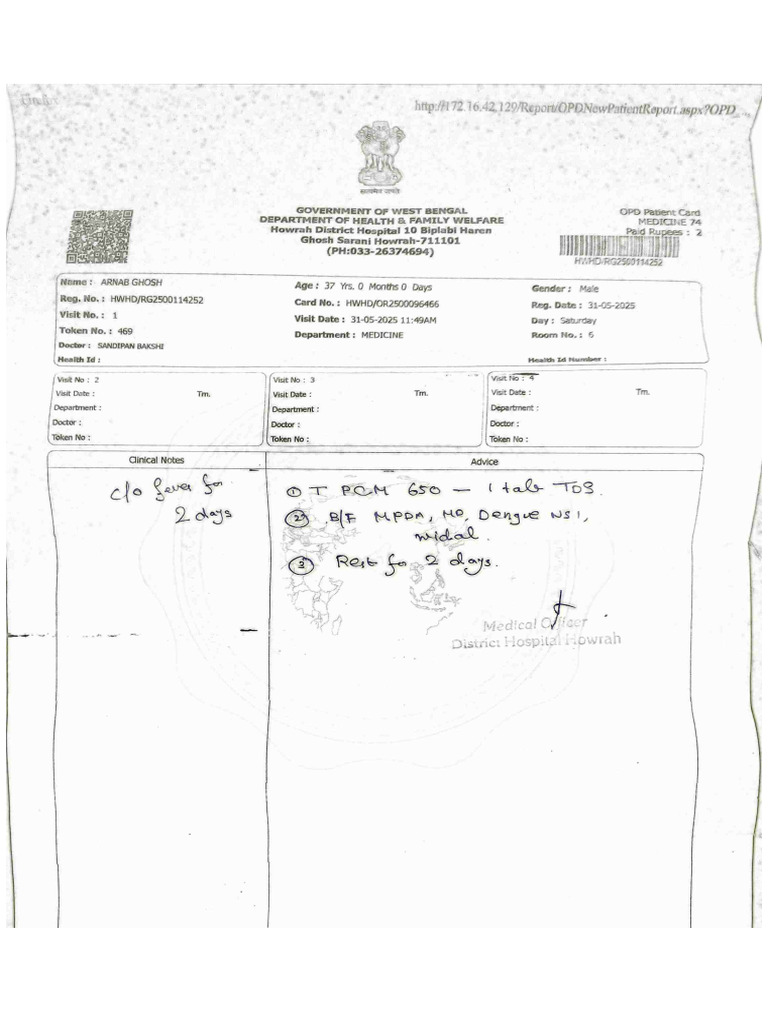 http://172.16.42.129/Report/OPDNewPatientReport.aspx?OPD_...
सत्यमेव जयते
GOVERNMENT OF WEST BENGAL
DEPARTMENT OF HEALTH & FAMILY WELFARE
Howrah District Hospital 10 Biplabi Haren
Ghosh Sarani Howrah-711101
(PH:033-26374694)
OPD Patient Card
MEDICINE 74
Paid Rupees : 2
HWHD/RG2500114252
Name : ARNAB GHOSH Age : 37 Yrs. 0 Months 0 Days Gender : Male
Reg. No. : HWHD/RG2500114252 Card No. : HWHD/OR2500096466 Reg. Date : 31-05-2025
Visit No. : 1 Visit Date : 31-05-2025 11:49AM Day : Saturday
Token No. : 469 Department : MEDICINE Room No. : 6
Doctor : SANDIPAN BAKSHI
Health Id : Health Id Number :
Visit No : 2 Visit No : 3 Visit No : 4
Visit Date : Tm. Visit Date : Tm. Visit Date : Tm.
Department : Department : Department :
Doctor : Doctor : Doctor :
Token No : Token No : Token No :
Clinical Notes Advice
C/O fever for
2 days
① T PCM 650 — 1 tab TDS.
② B/F MPDA, MP, Dengue NS1,
Widal.
③ Rest for 2 days.
Medical Officer
District Hospital Howrah